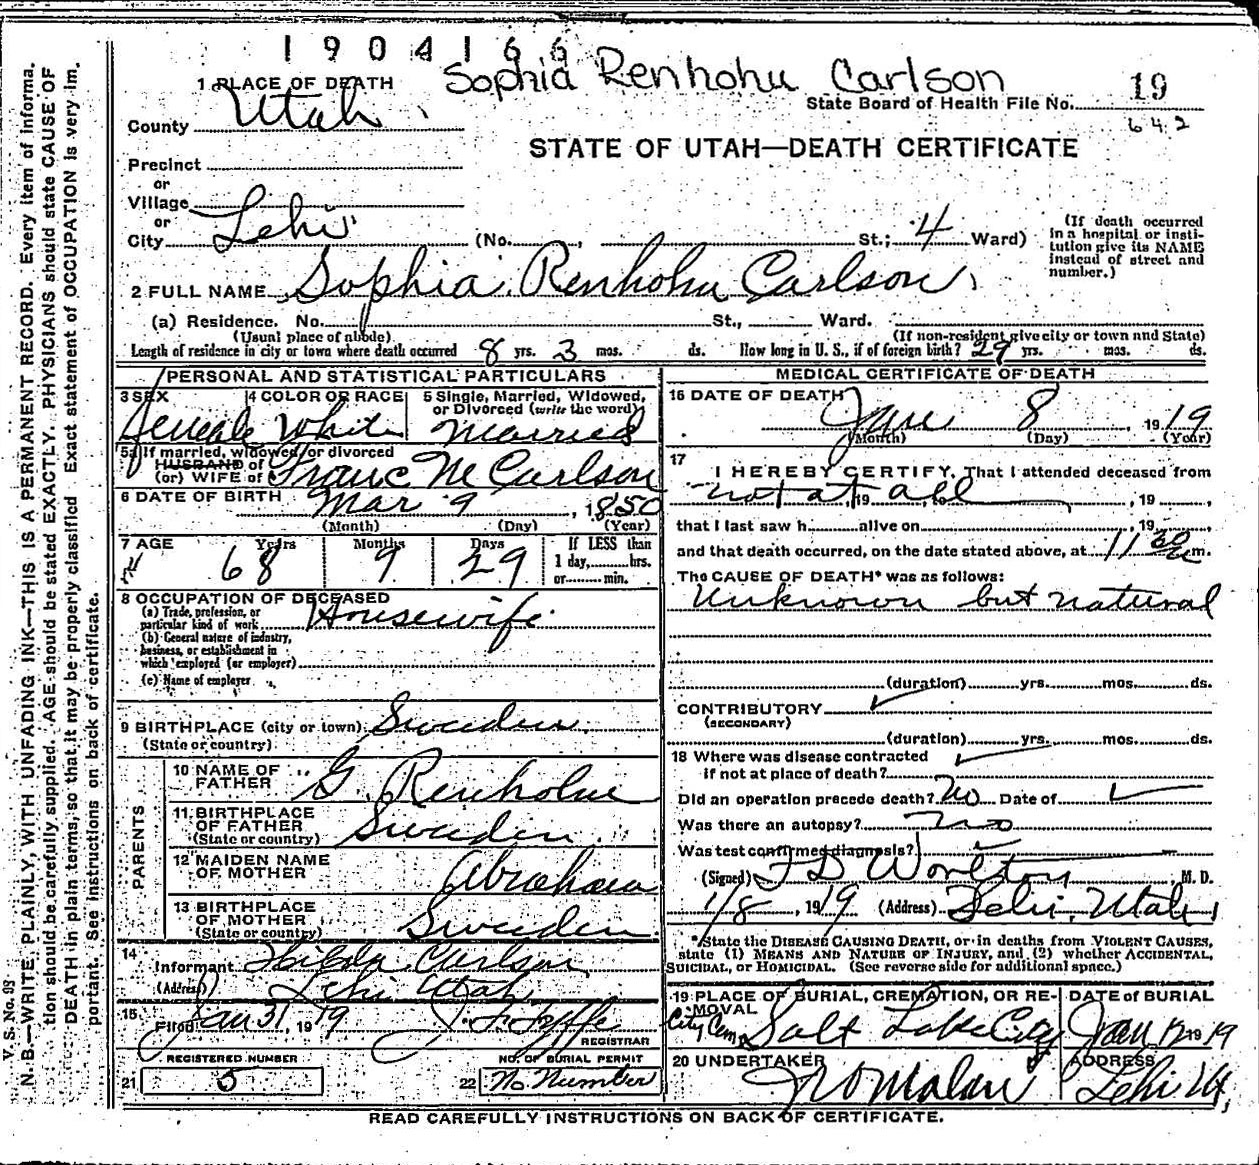 1904166
Sophia Renhohu Carlson
1 PLACE OF DEATH
State Board of Health File No. 19
642
County Utah
STATE OF UTAH—DEATH CERTIFICATE
Precinct
or
Village
or
City Lehi (No. , St.; 4 Ward) (If death occurred in a hospital or insti-
tution give its NAME instead of street and number.)
2 FULL NAME Sophia Renhohu Carlson
(a) Residence. No. St., Ward.
(Usual place of abode) (If non-resident give city or town and State)
Length of residence in city or town where death occurred 8 yrs. 3 mos. ds. How long in U. S., if of foreign birth? 29 yrs. mos. ds.
PERSONAL AND STATISTICAL PARTICULARS
3 SEX 4 COLOR OR RACE 5 Single, Married, Widowed,
or Divorced (write the word)
Female White Married
5a If married, widowed, or divorced
HUSBAND of
(or) WIFE of Franc M Carlson
6 DATE OF BIRTH Mar 9, 1850
(Month) (Day) (Year)
7 AGE Years Months Days If LESS than
68 9 29 1 day, hrs.
or min.
8 OCCUPATION OF DECEASED
(a) Trade, profession, or
particular kind of work Housewife
(b) General nature of industry,
business, or establishment in
which employed (or employer)
(c) Name of employer
9 BIRTHPLACE (city or town) Sweden
(State or country)
PARENTS
10 NAME OF
FATHER G.
11 BIRTHPLACE
OF FATHER
(State or country) Sweden
12 MAIDEN NAME
OF MOTHER
13 BIRTHPLACE
OF MOTHER
(State or country) Sweden
14
Informant Hilda Carlson
(Address) Lehi Utah
15
Filed Jan 31, 1919
REGISTRAR
REGISTERED NUMBER NO. OF BURIAL PERMIT
21 5 22 No Number
MEDICAL CERTIFICATE OF DEATH
16 DATE OF DEATH
Jan 8 1919
(Month) (Day) (Year)
17
I HEREBY CERTIFY, That I attended deceased from
not at all, 19 , to , 19 ,
that I last saw h alive on , 19 ,
and that death occurred, on the date stated above, at 11 30 m.
The CAUSE OF DEATH* was as follows:
Unknown but natural
(duration) yrs. mos. ds.
CONTRIBUTORY
(SECONDARY)
(duration) yrs. mos. ds.
18 Where was disease contracted
if not at place of death?
Did an operation precede death? No Date of
Was there an autopsy? no
Was test confirmed diagnosis?
(Signed) , M. D.
1/8, 1919 (Address) Lehi, Utah
*State the DISEASE CAUSING DEATH, or in deaths from VIOLENT CAUSES,
state (1) MEANS AND NATURE OF INJURY, and (2) whether ACCIDENTAL,
SUICIDAL, or HOMICIDAL. (See reverse side for additional space.)
19 PLACE OF BURIAL, CREMATION, OR RE-
MOVAL DATE of BURIAL
City Cem Salt Lake City Jan 12 1919
20 UNDERTAKER ADDRESS
Lehi Ut,
READ CAREFULLY INSTRUCTIONS ON BACK OF CERTIFICATE.
V. S. No. 95
N. B.—WRITE PLAINLY, WITH UNFADING INK—THIS IS A PERMANENT RECORD. Every item of informa-
tion should be carefully supplied. AGE should be stated EXACTLY. PHYSICIANS should state CAUSE OF
DEATH in plain terms, so that it may be properly classified. Exact statement of OCCUPATION is very im-
portant. See instructions on back of certificate.